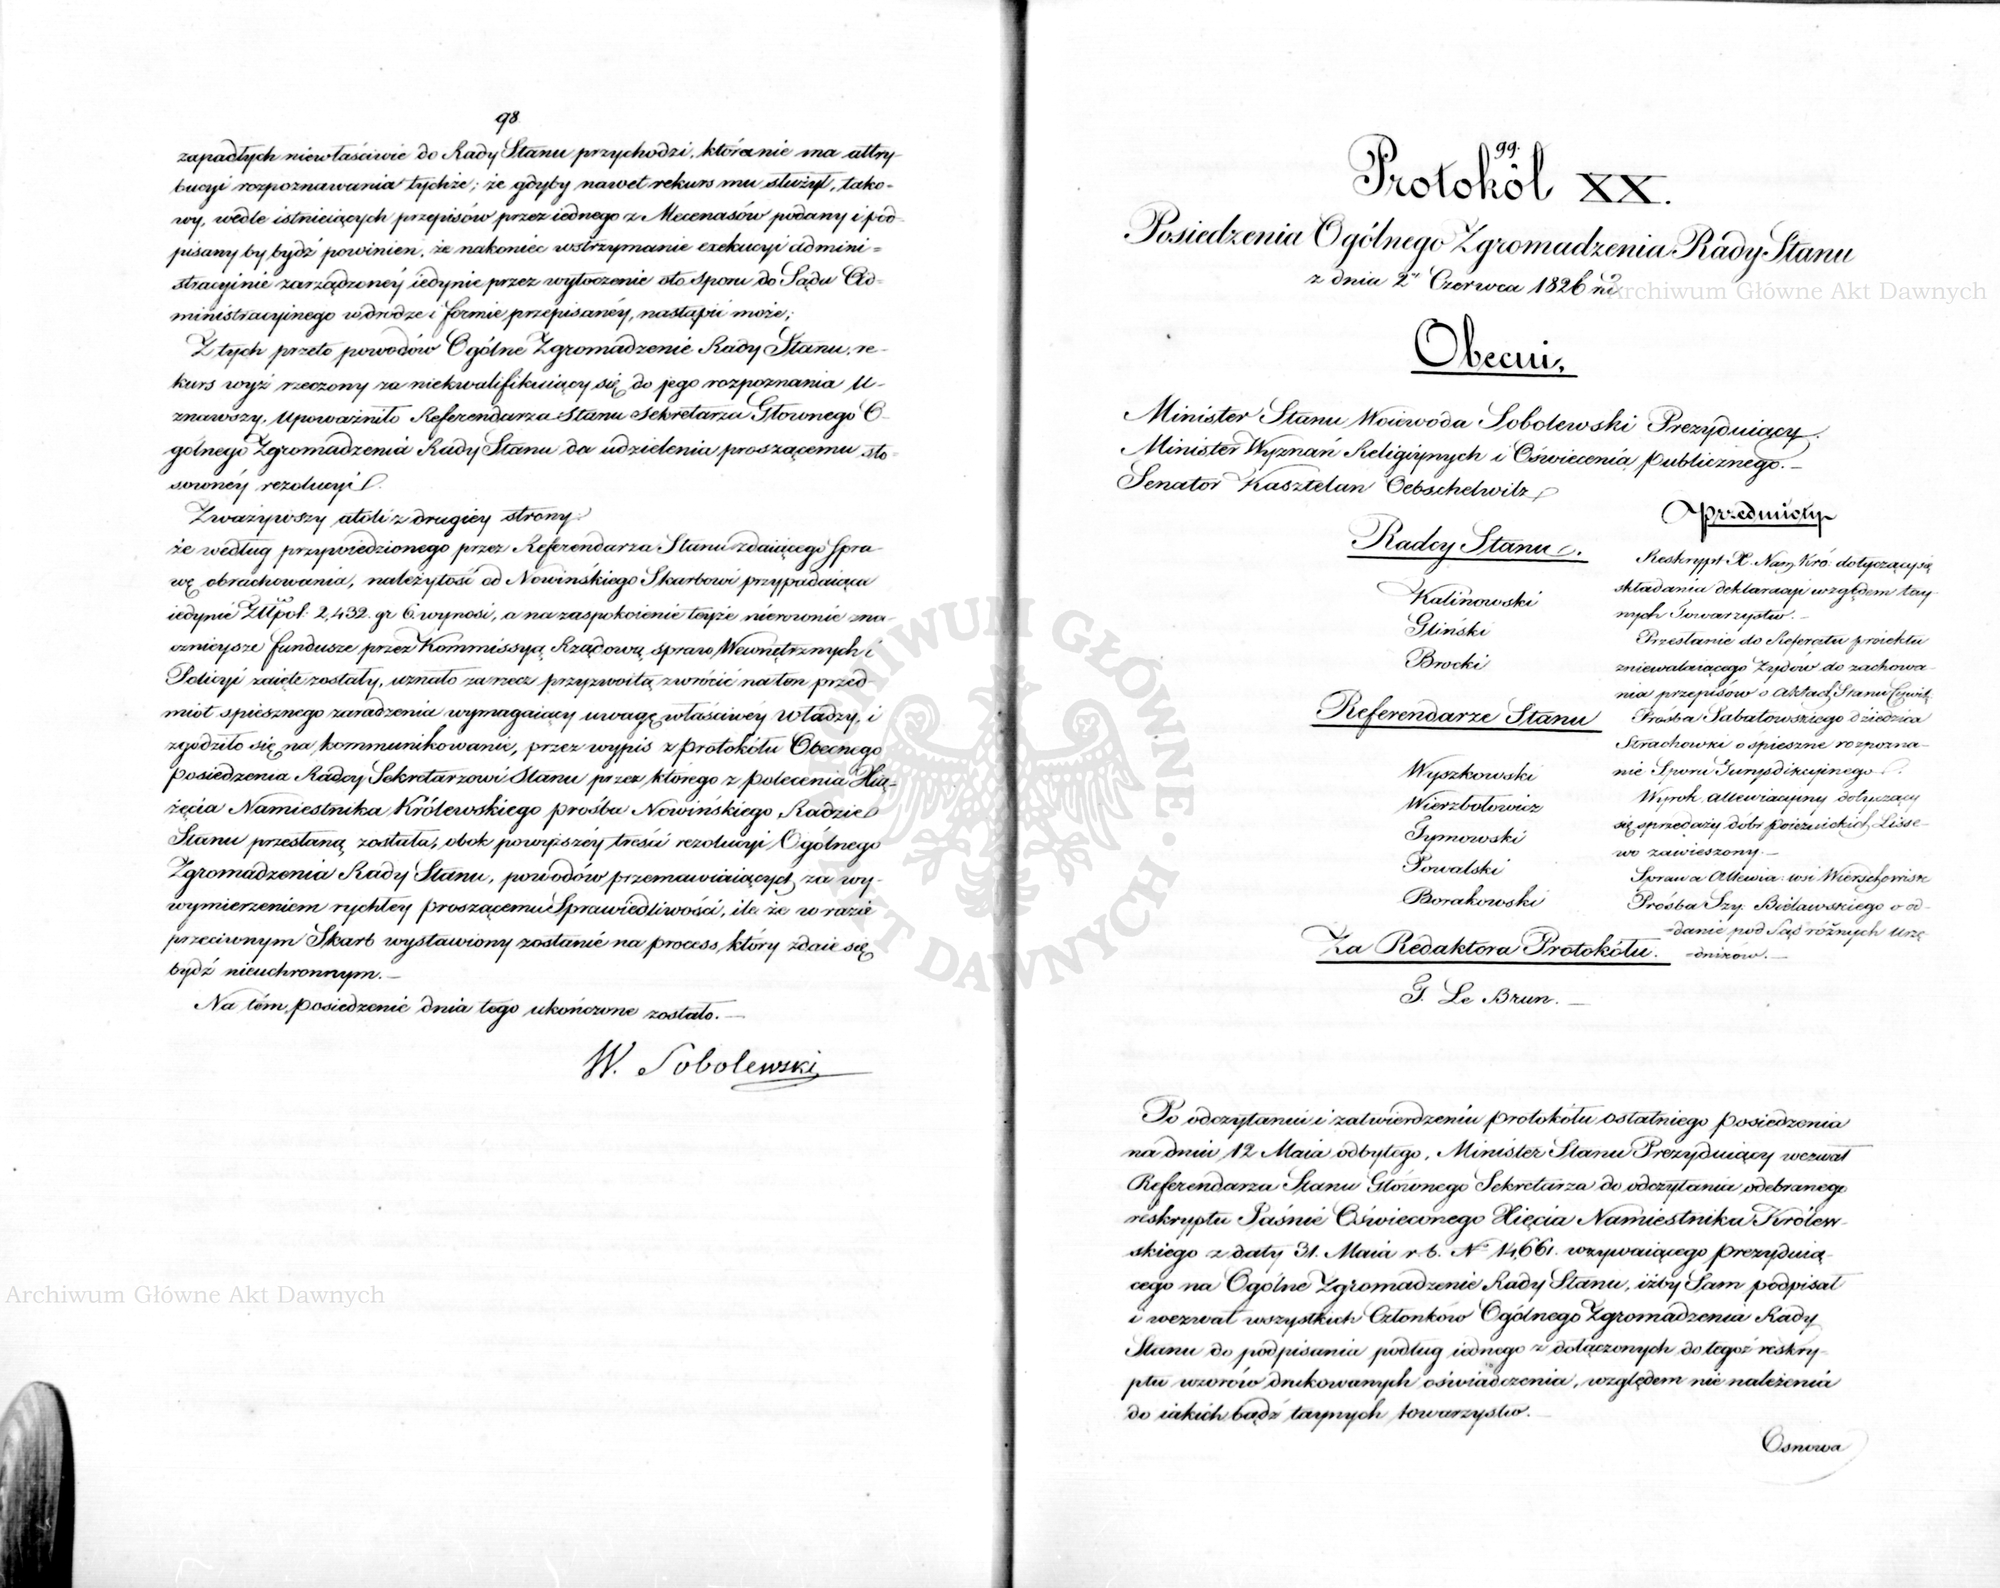 98.
zapadłych niewłaściwie do Rady Stanu przychodzi, która nie ma attry-
bucyi rozpoznawania tychże; że gdyby nawet rekurs mu służył, tako-
wy, wedle istnieiących przepisów przez iednego z Mecenasów podany i pod-
pisany by bydź powinien, że nakoniec wstrzymanie exekucyi admini-
stracyinie zarządzoney iedynie przez wytoczenie oto Sporu do Sądu Ad-
ministracyinego w drodze i formie przepisanéy, nastąpić może;
Z tych przeto powodów Ogólne Zgromadzenie Rady Stanu, re-
kurs wyż rzeczony za niekwalifikuiący się do jego rozpoznania u-
znawszy, upoważniło Referendarza Stanu Sekretarza Głównego O-
gólnego Zgromadzenia Rady Stanu da udzielenia proszącemu sto-
sownéy rezolucyi.
Zważywszy atoli z drugiey strony:
że według przywiedzionego przez Referendarza Stanu zdaiącego Spra-
wę obrachowania, należytość od Nowińskiego Skarbowi przypadaiąca
iedynie Złłpol: 2,432. gr 6. wynosi, a na zaspokoienie teyże nierównie zna-
cznieysze fundusze przez Kommissyą Rządową spraw Wewnętrznych i
Policyi zaięte zostały, uznało za rzecz przyzwoitą zwrócić na ten przed-
miot spiesznego zaradzenia wymagaiący uwagę właściwéy Władzy, i
zgodziło się na kommunikowanie, przez wypis z protokółu Obecnego
posiedzenia Radcy Sekretarzowi Stanu przez którego z polecenia Xią-
żęcia Namiestnika Królewskiego prośba Nowińskiego Radzie
Stanu przesłaną została, obok powyższéy treści rezolucyi Ogólnego
Zgromadzenia Rady Stanu, powodów przemawiaiących za wy-
wymierzeniem rychłey proszącemu Sprawiedliwości, ile że w razie
przeciwnym Skarb wystawiony zostanie na process, który zdaie się
bydź nieuchronnym.—
Na tém posiedzenie dnia tego ukończone zostało.—
W. Sobolewski
99.
Protokół XX.
Posiedzenia Ogólnego Zgromadzenia Rady Stanu
z dnia 2º Czerwca 1826 r.
Obecni,
Minister Stanu Woiewoda Sobolewski Prezyduiący.
Minister Wyznań Religiynych i Oświecenia publicznego.—
Senator Kasztelan Oebschelwitz
Radcy Stanu.
Kalinowski
Gliński
Brocki
Referendarze Stanu
Wyszkowski
Wierzbołowicz
Tymowski
Powalski
Borakowski
Za Redaktora Protokółu.
G. Le Brun.—
Przedmioty
Reskrypt X. Nam. Kró: dotyczący się
składania deklaracyi względem tay-
nych Towarzystw.—
Przesłanie do Referatu proiektu
zniewalaiącego Żydów do zachowa-
nia przepisów o Aktach Stanu Cywil:
Prośba Sabatowskiego dziedzica
Strachowki o spieszne rozpozna-
nie Sporu Jurysdikcyinego.
Wyrok Allewiacyiny dotyczący
się sprzedaży dóbr poiezuickich Lisse-
wo zawieszony.—
Sprawa Allewia: wsi Wierzchowisk
Prośba Szy: Bielawskiego o od-
-danie pod Sąd różnych Urzę-
-dników.—
Po odczytaniu i zatwierdzeniu protokółu ostatniego posiedzenia
na dniu 12 Maia odbytego, Minister Stanu Prezyduiący wezwał
Referendarza Stanu Głównego Sekretarza do odczytania odebranego
reskryptu Jaśnie Oświeconego Xięcia Namiestnika Królew-
skiego z daty 31. Maia r. b. Nº 14,661. wzywaiącego prezyduią-
cego na Ogólne Zgromadzenie Rady Stanu, iżby Sam podpisał
i wezwał wszystkich Członków Ogólnego Zgromadzenia Rady
Stanu do podpisania podług iednego z dołączonych do tegoż reskry-
ptu wzorów drukowanych oświadczenia, względem nie należenia
do iakich bądź taynych towarzystw.—
Osnowa
Archiwum Główne Akt Dawnych
Archiwum Główne Akt Dawnych
ARCHIWUM GŁÓWNE · AKT DAWNYCH ·